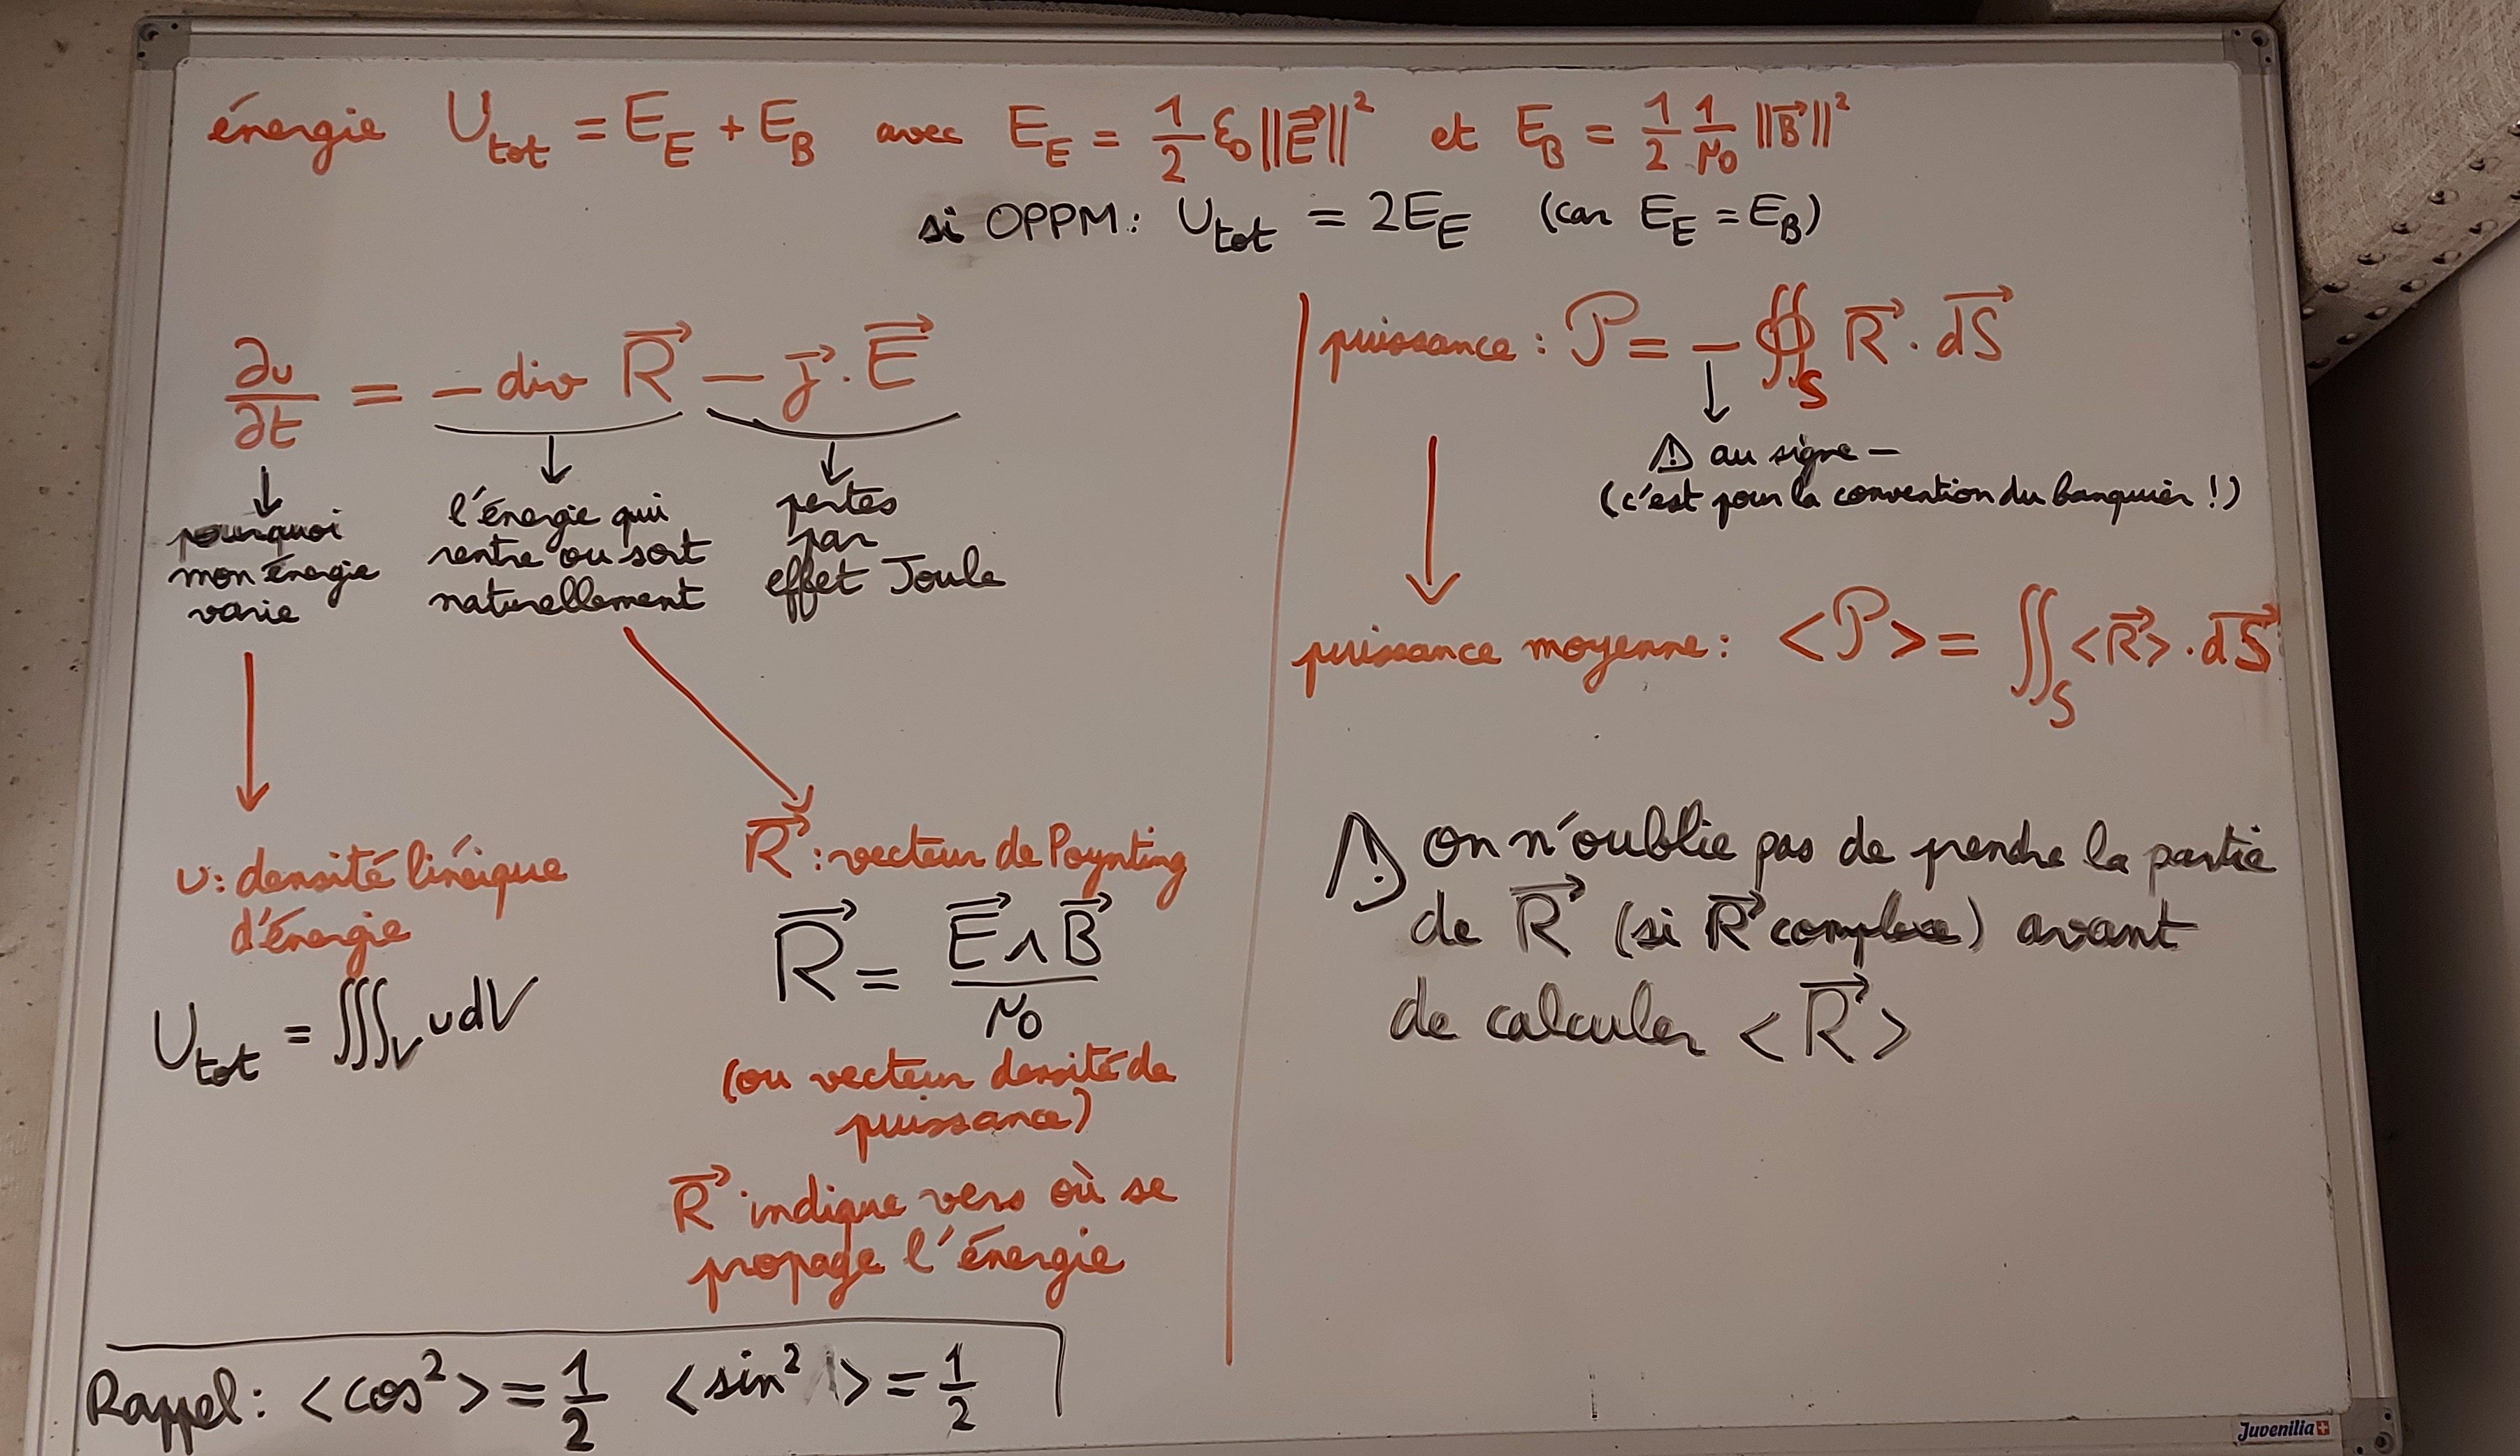 énergie U_tot = E_E + E_B avec E_E = 1/2 ε0 ||E⃗||² et E_B = 1/2 1/μ0 ||B⃗||²
si OPPM : U_tot = 2E_E (car E_E = E_B)
∂u/∂t = − div R⃗ − j⃗ . E⃗
pourquoi
mon énergie
varie
l'énergie qui
rentre ou sort
naturellement
pertes
par
effet Joule
u : densité linéique
d'énergie
U_tot = ∭_V u dV
R⃗ : vecteur de Poynting
R⃗ = E⃗ ∧ B⃗ / μ0
(ou vecteur densité de
puissance)
R⃗ indique vers où se
propage l'énergie
Rappel : <cos²> = 1/2 <sin²> = 1/2
puissance : P = − ∯_S R⃗ . dS⃗
⚠ au signe −
(c'est pour la convention du banquier !)
puissance moyenne : <P> = ∬_S <R⃗> . dS⃗
⚠ on n'oublie pas de prendre la partie
de R⃗ (si R⃗ complexe) avant
de calculer <R⃗>
Juvenilia